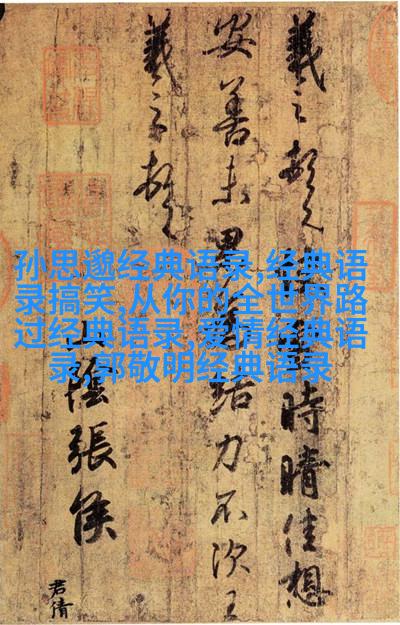 羲之頓首時晴佳想
安善未果結力不次王
羲之頓首
陰張侯
君倩
孙思邈经典语录,经典语
录搞笑,从你的全世界路
过经典语录,爱情经典语
录,郭敬明经典语录